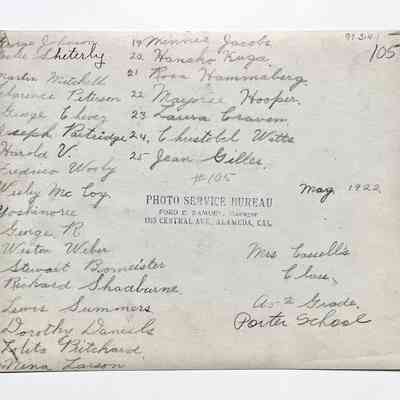 George Johnson
Shiterly
Martin Mitchell
Clarence Peterson
George Chevez
Joseph Partridge
Harold V.
Fredrico Wooby
Willy McCoy
Yoshinorie
George R.
Weston Weber
Stewart Bomeister
Richard Shadburne
Lewis Summers
Dorothy Daniels
Lolita Pritchard
Mena Larson
19 Minnie Jacobs
20. Hanako Kuga.
21 Rosa Hammaberg.
22 Marjorie Hooper.
23 Laura Craven.
24, Christobel Watts
25 Jean Gilles.
#105
PHOTO SERVICE BUREAU
FORD E. SAMUEL,
1315 CENTRAL AVE., ALAMEDA, CAL.
105
May 1922
Mrs Cassell's
Class,
A-2 Grade,
Porter School